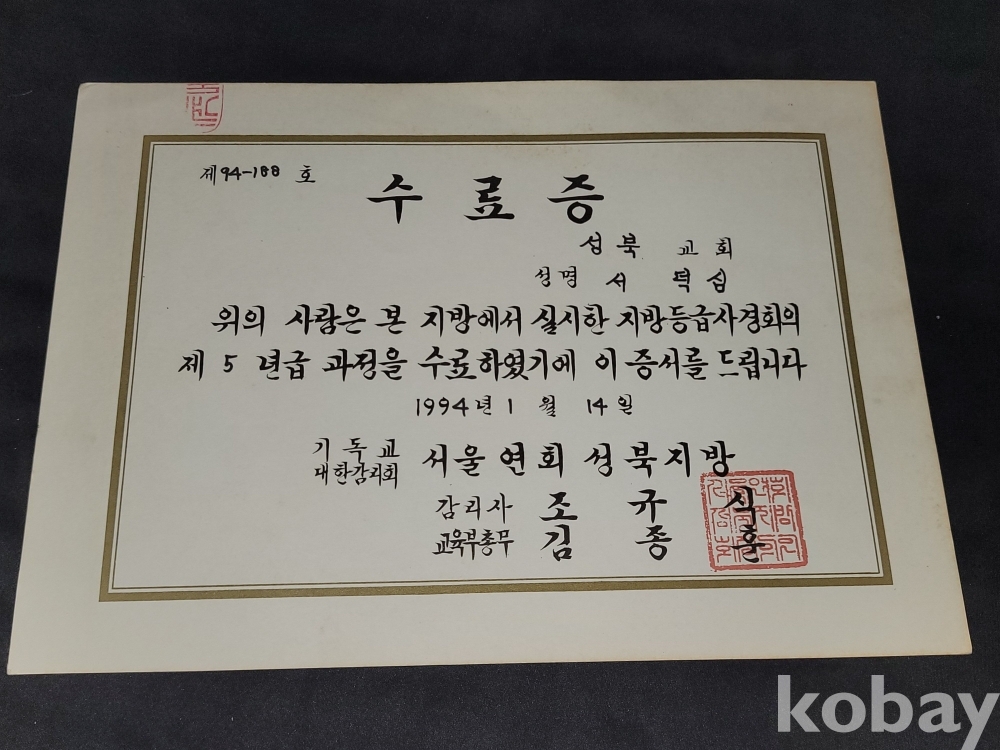 제94-188 호
수료증
성북 교회
성명 서 덕 심
위의 사람은 본 지방에서 실시한 지방등급사경회의
제 5 년급 과정을 수료하였기에 이 증서를 드립니다
1994년 1 월 14일
기독교
대한감리회 서울연회 성북지방
감리사 조 규 식
교육부총무 김 종 훈
kobay